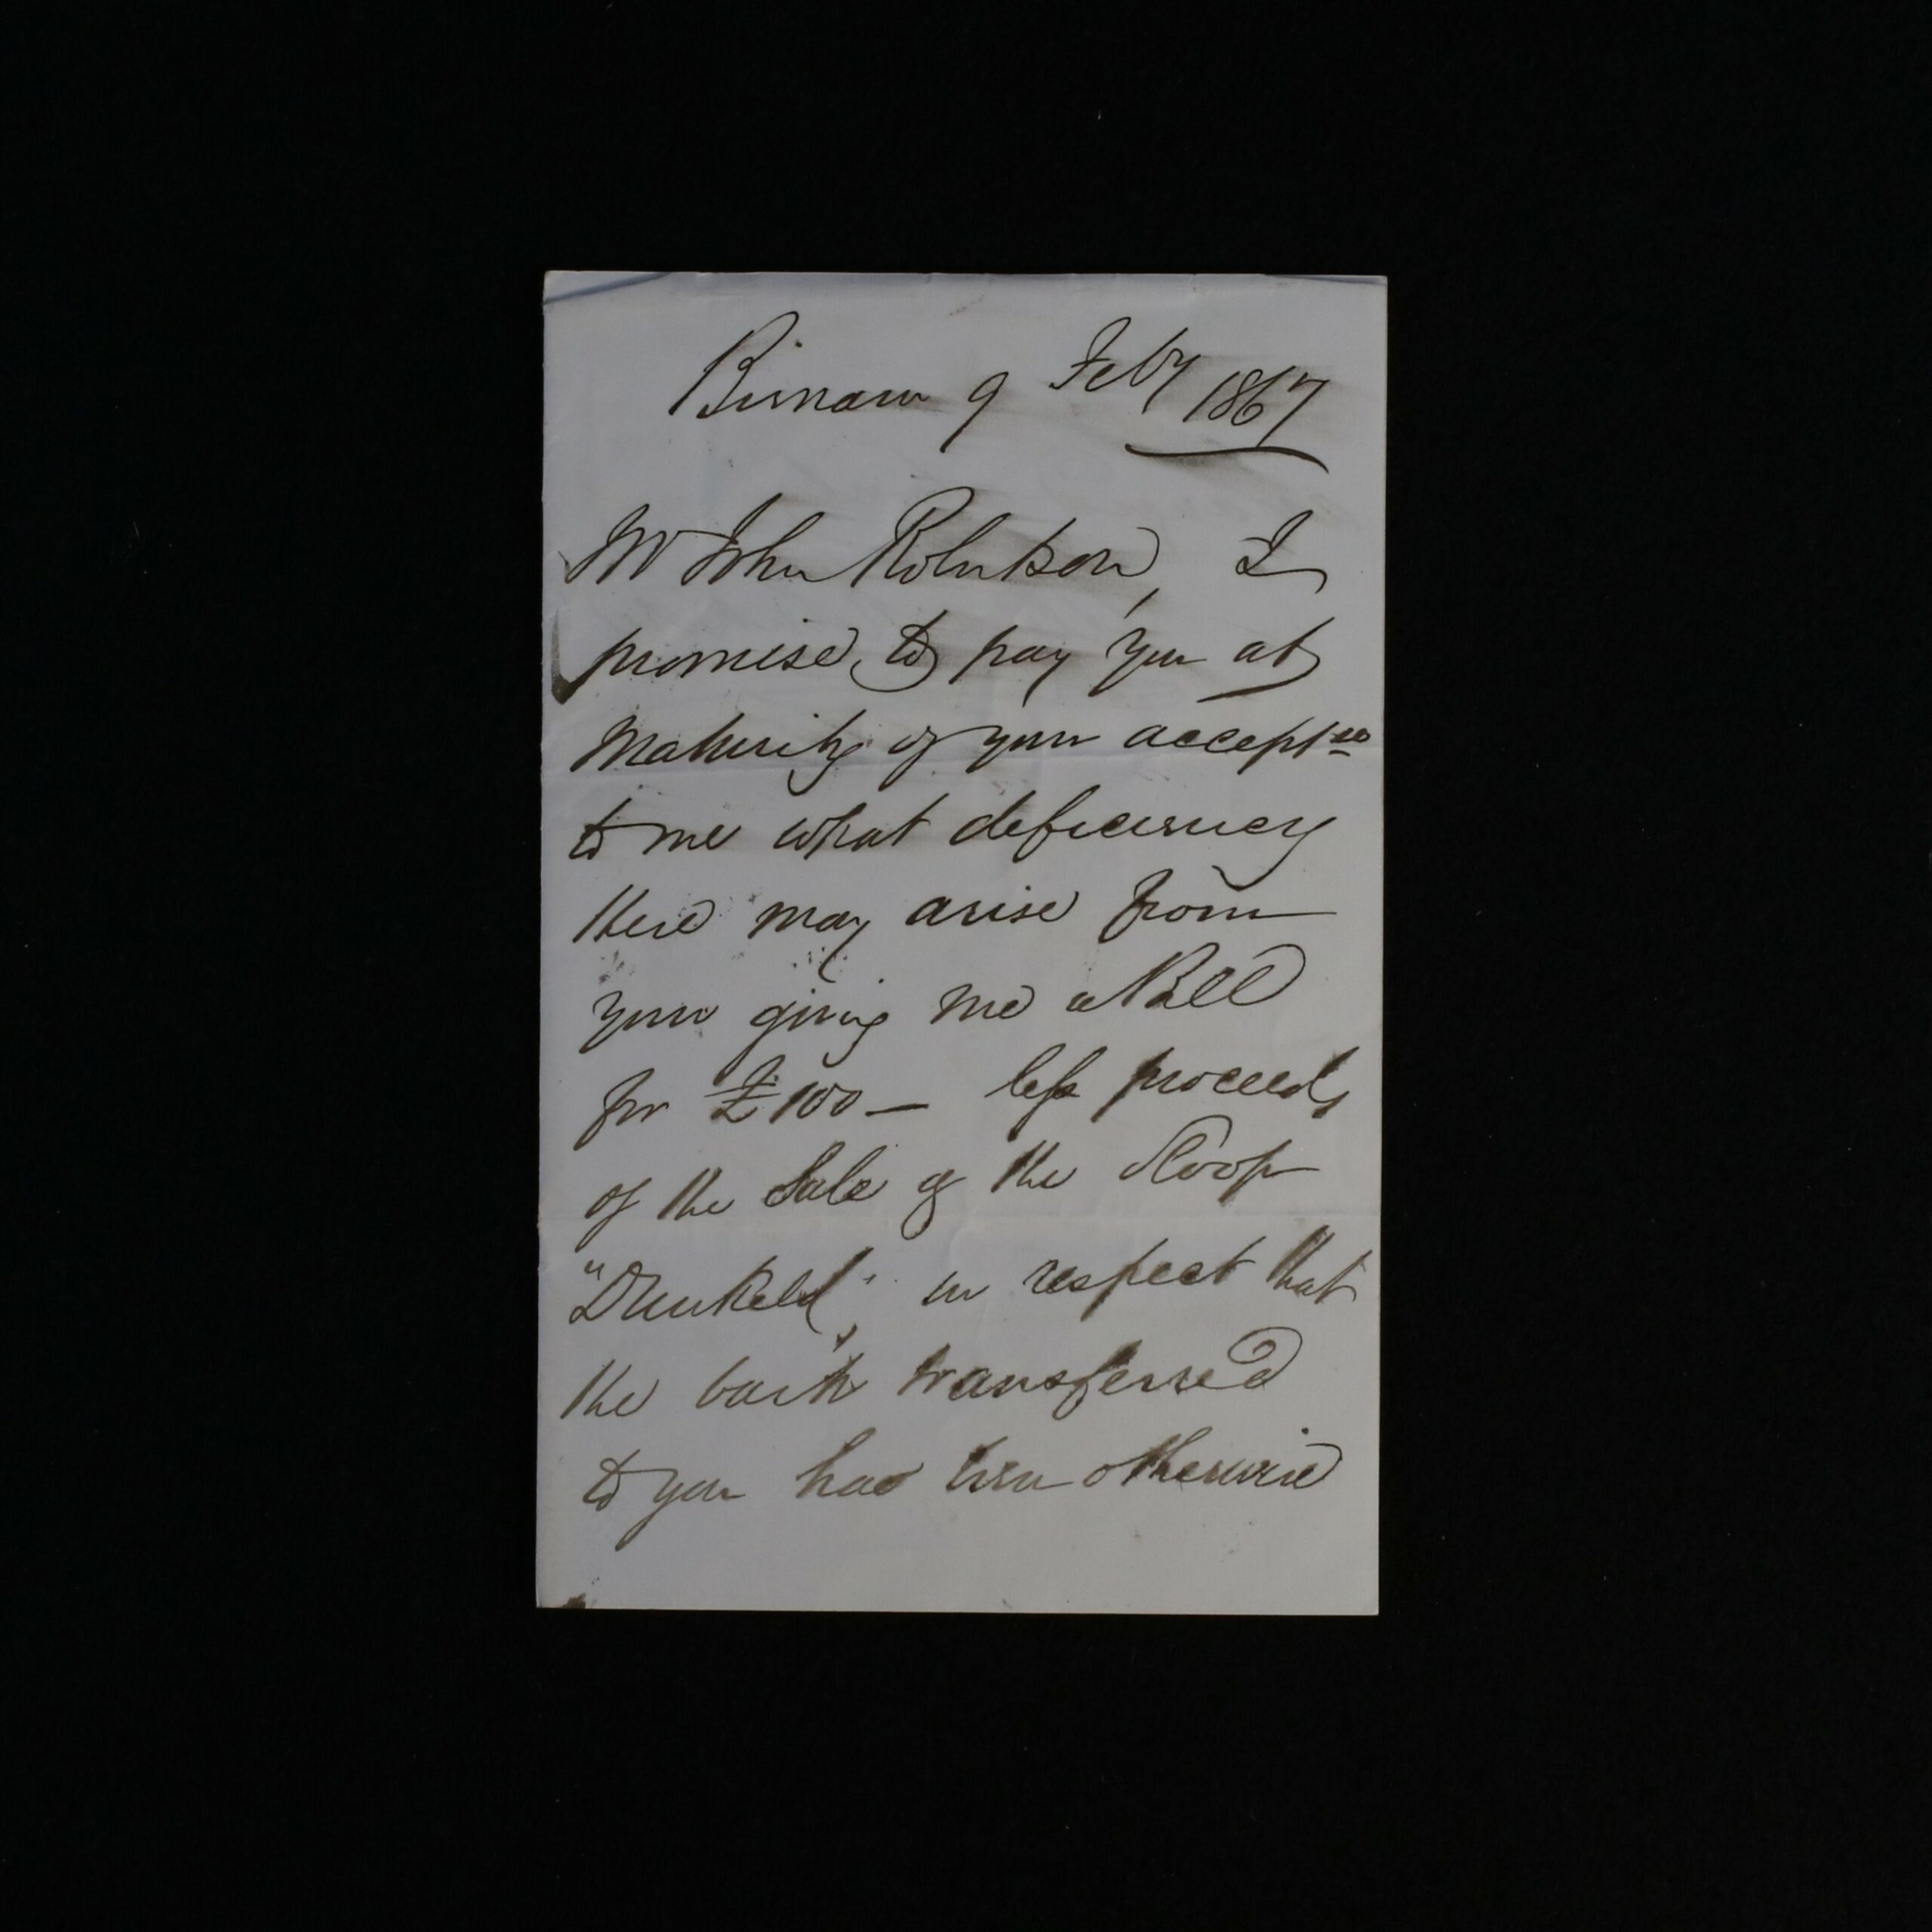 Birnam 9 Feby 1867
Mr John Robertson, I
promise to pay you at
Maturity of your acceptce
to me what deficiency
there may arise from
your giving me a Bill
for £100 — less proceeds
of the Sale of the Sloop
"Dunkeld", in respect that
the bark transferred
to you has been otherwise